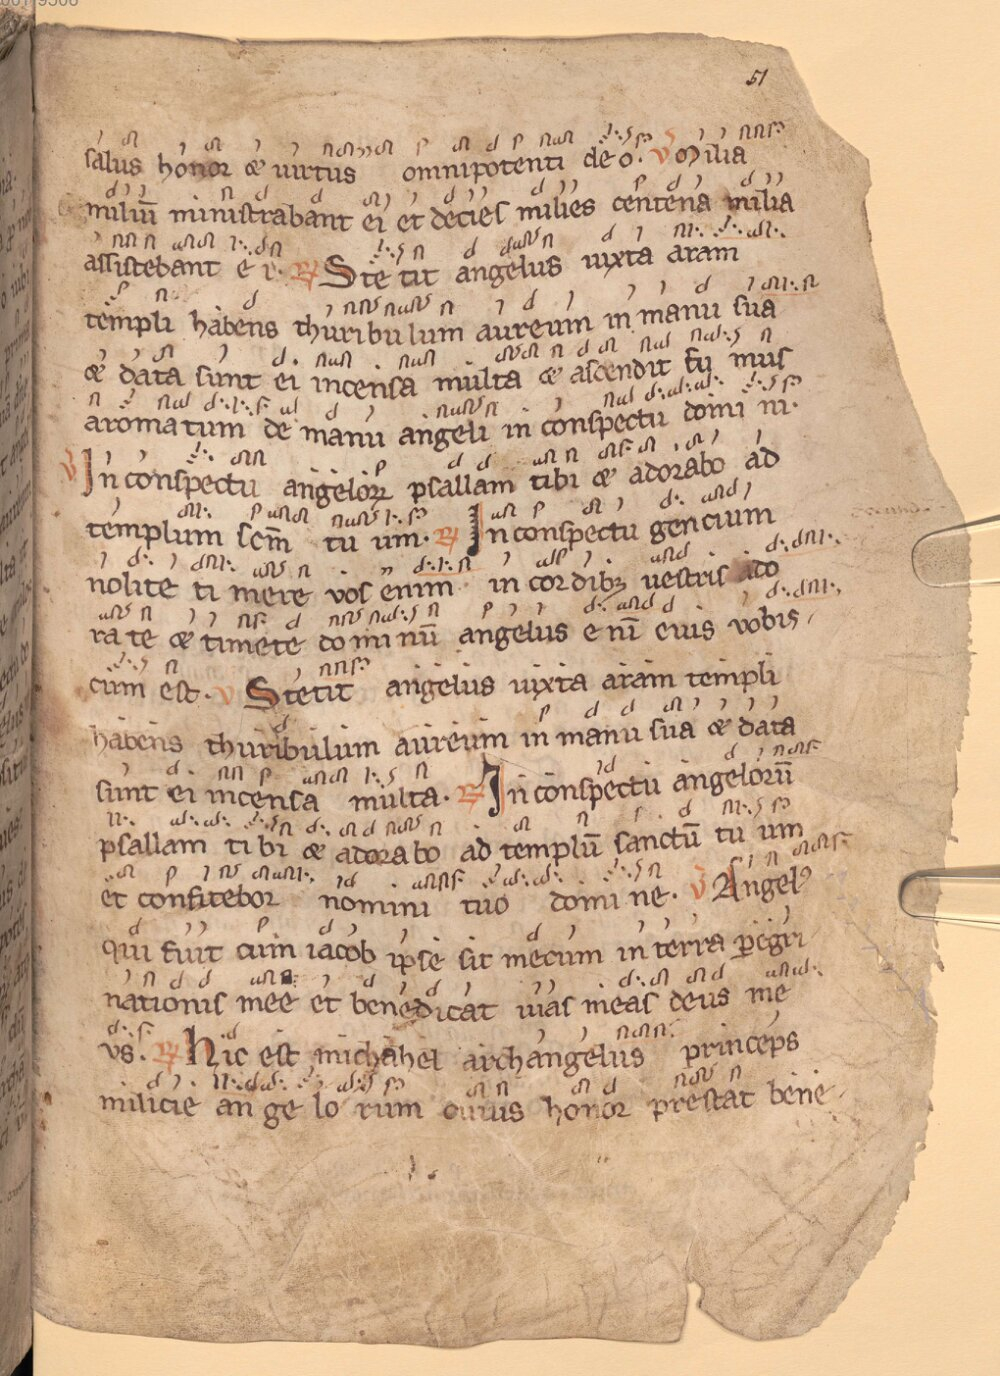 51
salus honor & uirtus omnipotenti deo. V Milia
miliū ministrabant ei et decies milies centena milia
assistebant ei. R Stetit angelus iuxta aram
templi habens thuribulum aureum in manu sua
& data sunt ei incensa multa & ascendit fumus
aromatum de manu angeli in conspectu domini.
V In conspectu angeloꝝ psallam tibi & adorabo ad
templum scm̄ tuum. R In conspectu gencium
nolite timere vos enim in cordibꝫ uestris ado
rate & timete dominū angelus enī eius vobis
cum est. V Stetit angelus iuxta aram templi
habens thuribulum aureum in manu sua & data
sunt ei incensa multa. R In conspectu angelorū
psallam tibi & adorabo ad templū sanctū tuum
et confitebor nomini tuo domine. V Angelꝰ
qui fuit cum iacob ipse sit mecum in terra pegri
nationis mee et benedicat uias meas deus me
vs. R Hic est michahel archangelus princeps
milicie angelorum cuius honor prestat bene